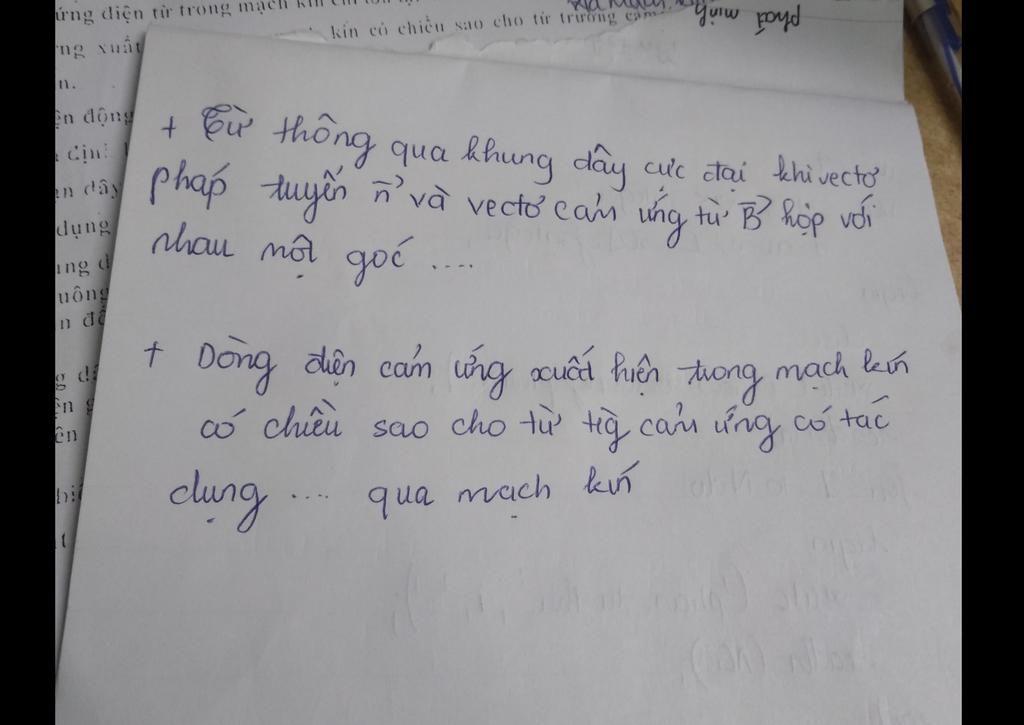 ứng điện từ trong mạch kín
kín có chiều sao cho từ trường cảm
phát minh
ng xuất
n.
ện động
n dây
dụng
ng d
uông
n đ
g d
ện
+ Từ thông qua khung dây cực đại khi vectơ
pháp tuyến n⃗ và vectơ cảm ứng từ B⃗ hợp với
nhau một góc ....
+ Dòng điện cảm ứng xuất hiện trong mạch kín
có chiều sao cho từ trg cảm ứng có tác
dụng .... qua mạch kín